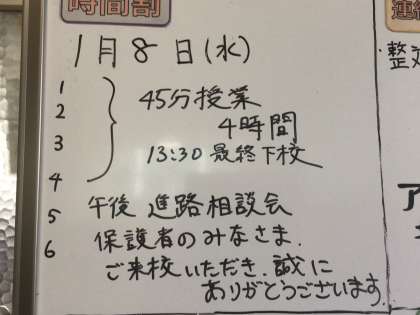 時間割
1月8日(水)
1
2
3
4
5
6
45分授業
4時間
13:30 最終下校
午後 進路相談会
保護者のみなさま.
ご来校いただき.誠に
ありがとうございます.
連絡
整
ア